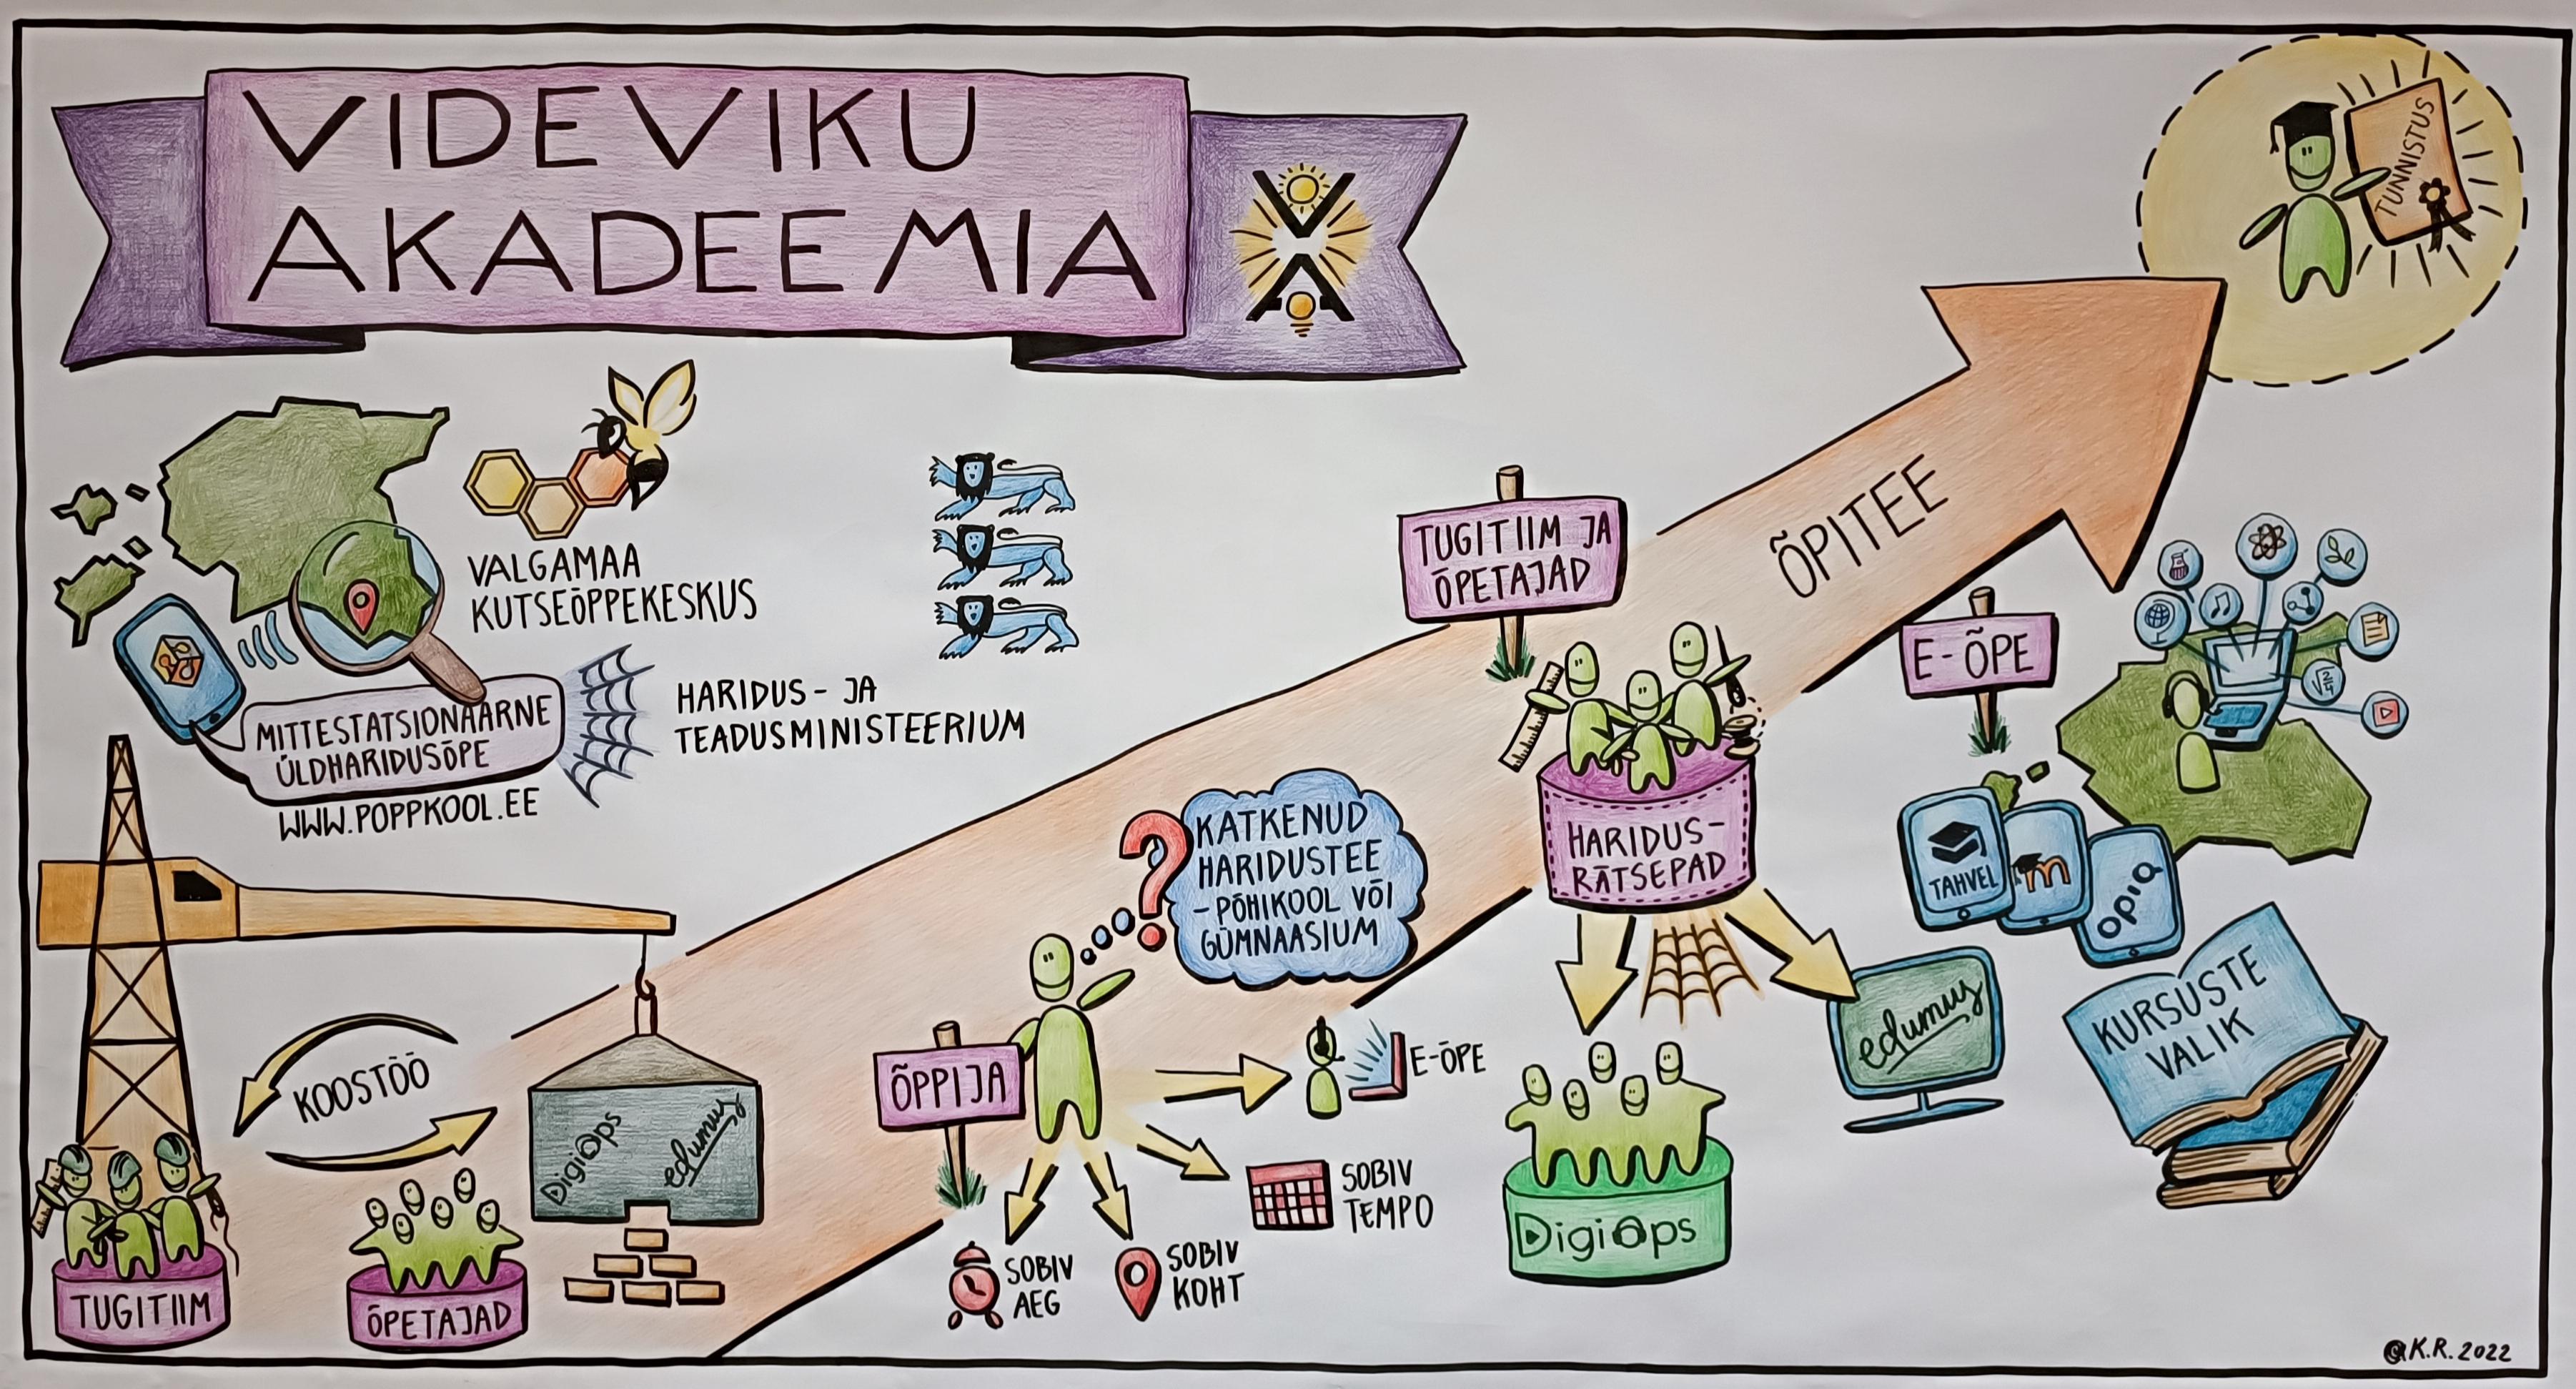 VIDEVIKU
AKADEEMIA
TUNNISTUS
VALGAMAA
KUTSEÕPPEKESKUS
HARIDUS- JA
TEADUSMINISTEERIUM
MITTESTATSIONAARNE
ÜLDHARIDUSÕPE
WWW.POPPKOOL.EE
ÕPITEE
TUGITIIM JA
ÕPETAJAD
HARIDUS-
RÄTSEPAD
E-ÕPE
√2/4
TAHVEL
m
opiq
KURSUSTE
VALIK
edumus
DigiOps
KATKENUD
HARIDUSTEE
- PÕHIKOOL VÕI
GÜMNAASIUM
?
ÕPPIJA
E-ÕPE
SOBIV
TEMPO
SOBIV
KOHT
SOBIV
AEG
KOOSTÖÖ
DigiOps
edumus
TUGITIIM
ÕPETAJAD
@K.R. 2022